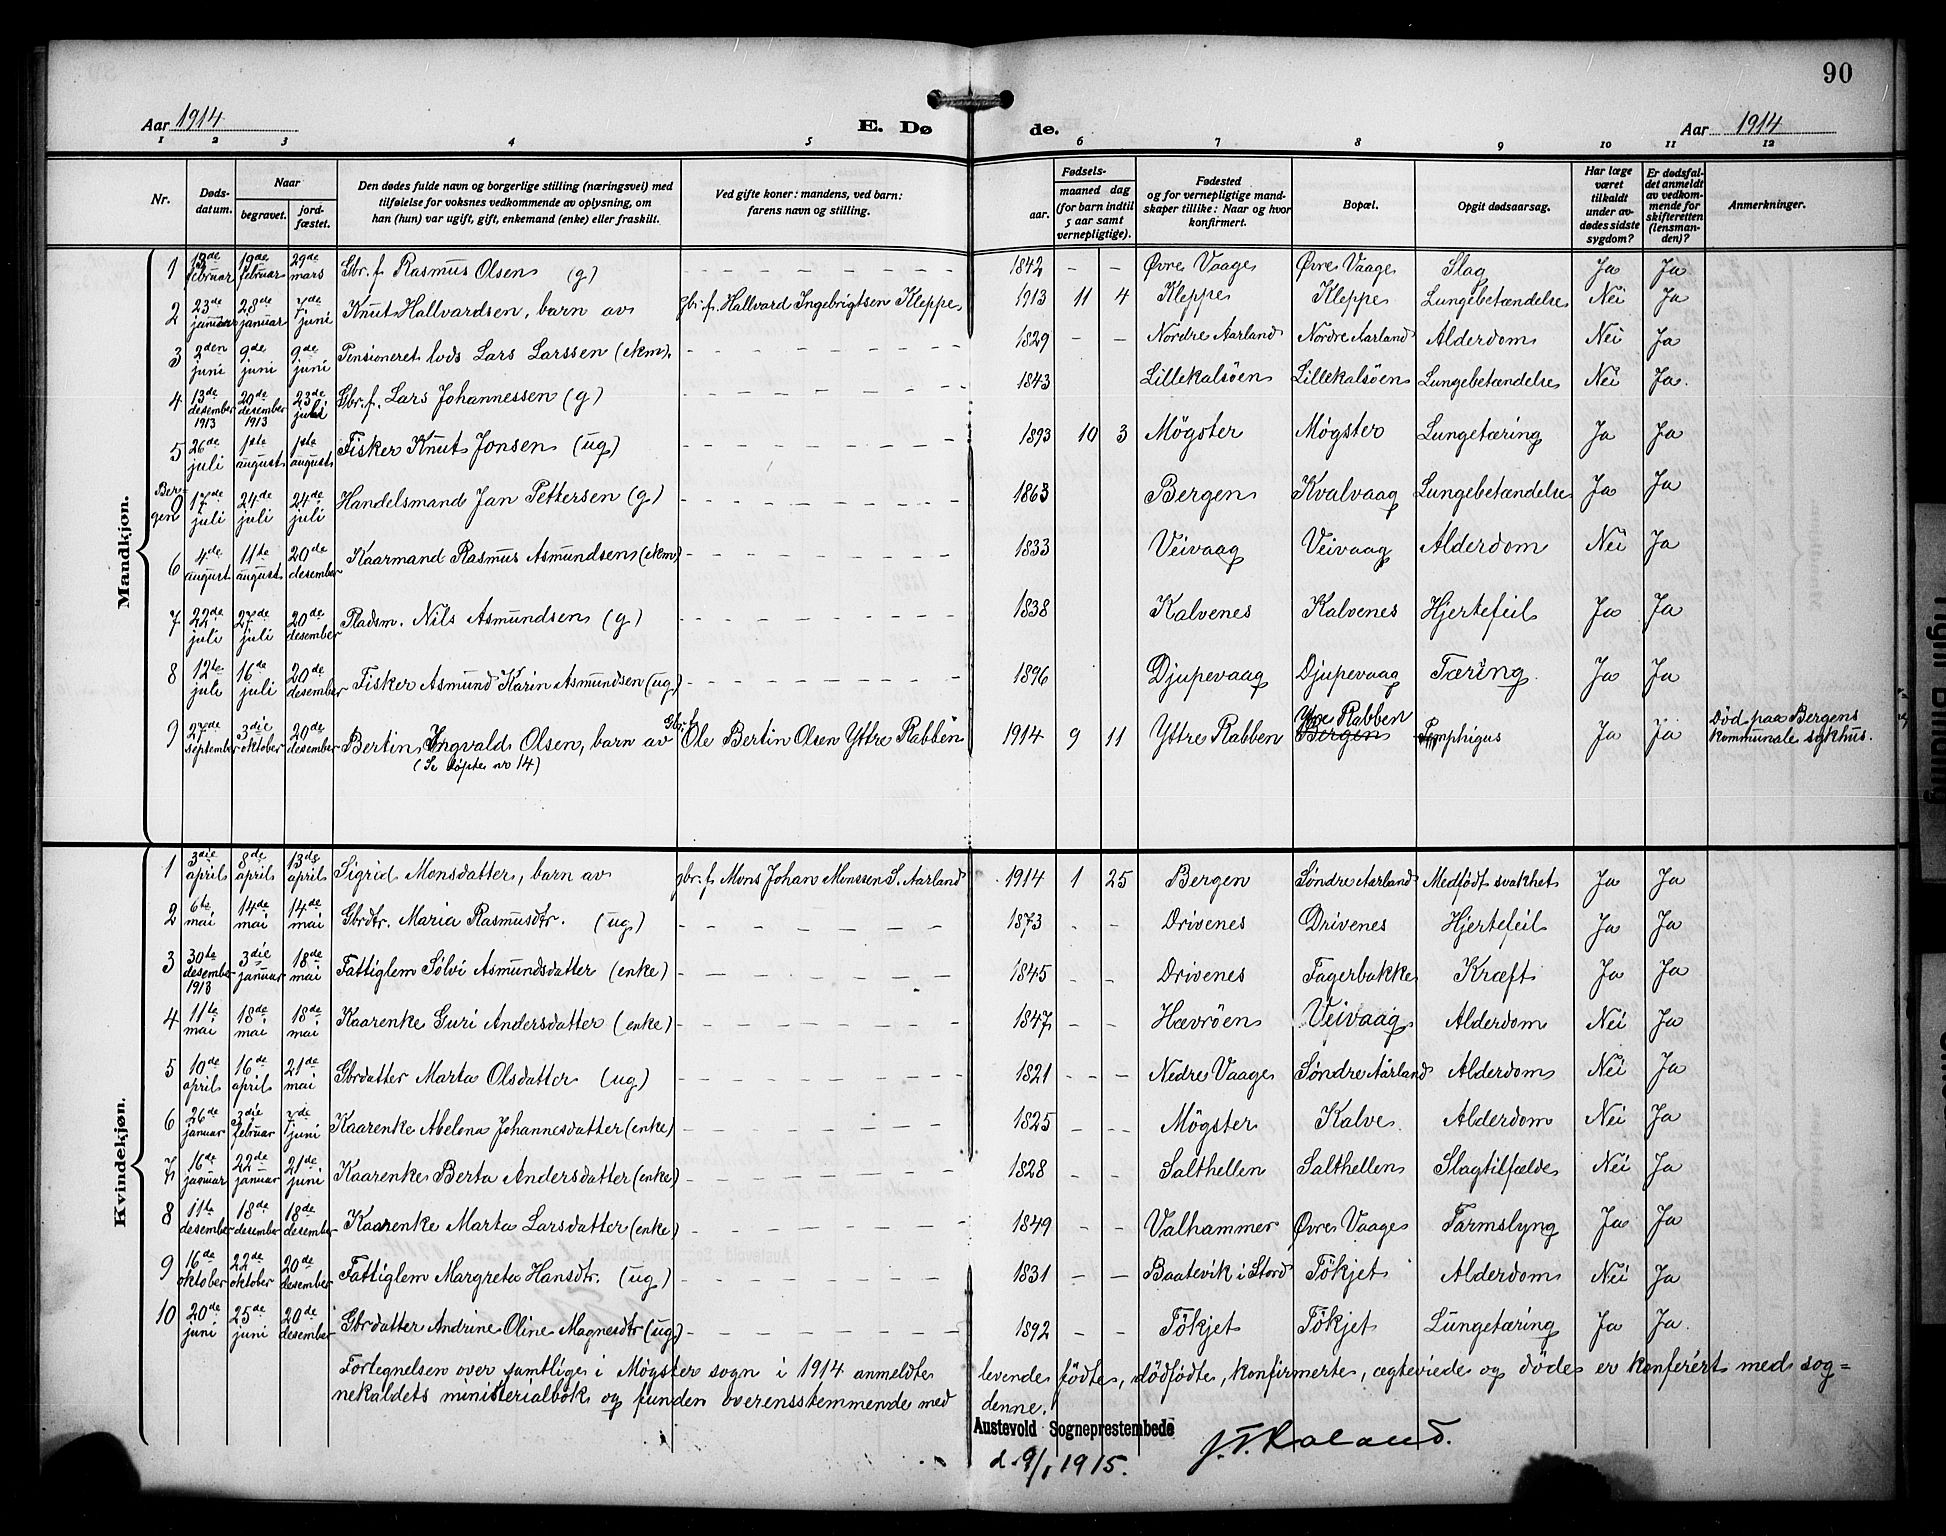 90
Aar 1914
E. Døde.
Aar 1914
1 2 3 4 5 6 7 8 9 10 11 12
Nr.
Døds-
datum.
Naar
begravet.
jord-
fæstet.
Den dødes fulde navn og borgerlige stilling (næringsvei) med
tilføielse for voksnes vedkommende av oplysning, om
han (hun) var ugift, gift, enkemand (enke) eller fraskilt.
Ved gifte koner: mandens, ved barn:
farens navn og stilling.
Fødsels-
aar.
maaned dag
(for barn indtil
5 aar samt
vernepligtige).
Fødested
og for vernepligtige mand-
skaper tillike: Naar og hvor
konfirmert.
Bopæl.
Opgit dødsaarsag.
Har læge
været
tilkaldt
under av-
dødes sidste
sygdom?
Er dødsfal-
det anmeldt
av vedkom-
mende for
skifteretten
(lensman-
den)?
Anmerkninger.
Mandkjøn.
1 13de februar 19de februar 29de mars Gbr. f. Rasmus Olsen (g) 1842 - - Øvre Vaage Øvre Vaage Slag Ja Ja
2 23de januar 28de januar 7de juni Knut Hallvardsen, barn av gbr. f. Hallvard Ingebrigtsen Kleppe 1913 11 4 Kleppe Kleppe Lungebetændelse Nei Ja
3 2den juni 9de juni 9de juni Pensioneret lods Lars Larssen (ekm). 1829 - - Nordre Aarland Nordre Aarland Alderdom Nei Ja
4 13de desember 1913 20de desember 1913 23de juli Gbr. f. Lars Johannessen (g) 1843 Lillekalsöen Lillekalsöen Lungebetændelse Nei Ja.
5 26de juli 1ste august 1ste august Fisker Knut Jonsen (ug) 1893 10 3 Møgster Møgster Lungetæring Ja Ja
Ber-
gen 17de juli 24de juli 24de juli Handelsmand Jan Pettersen (g) 1863 Bergen Kvalvaag Lungebetændelse Ja Ja
6 4de august 11te august 20de desember Kaarmand Rasmus Asmundsen (ekm) 1833 Veivaag Veivaag Alderdom Nei Ja
7 22de juli 27de juli 20de desember Radsm. Nils Asmundsen (g) 1838 Kalvenes Kalvenes Hjertefeil Ja Ja
8 12te juli 16de juli 20de desember Fisker Asmund Karin Asmundsen (ug) 1896 Djupevaag Djupevaag Tæring Ja Ja
9 27de september 3die oktober 20de desember Bertin Ingvald Olsen, barn av Gbr. f. Ole Bertin Olsen Yttre Rabben 1914 9 11 Yttre Rabben Ytre Rabben Bergen Pemphigus Ja Ja Død paa Bergens
kommunale sykhus.
(Se døpte no 14)
Kvindekjøn.
1 3die april 8de april 13de april Sigrid Monsdatter, barn av gbr. f. Mons Johan Monssen S. Aarland 1914 1 25 Bergen Søndre Aarland Medfødt svakhet Ja Ja
2 6te mai 14de mai 14de mai Gbrdtr. Maria Rasmusdtr. (ug) 1873 - - Drivenes Drivenes Hjertefeil Ja Ja
3 30te desember 1913 3die januar 18de mai Fattiglem Sølvi Asmundsdatter (enke) 1845 - - Drivenes Fagerbakke Kræft Ja Ja
4 11te mai 18de mai 18de mai Kaarenke Guri Andersdatter (enke) 1847 - - Hævröen Veivaag Alderdom Nei Ja
5 10de april 16de april 21de mai Gbrdatter Marta Olsdatter (ug) 1821 - - Nedre Vaage Søndre Aarland Alderdom Nei Ja
6 26de januar 3die februar 7de juni Kaarenke Abelona Johannesdatter (enke) 1825 - - Møgster Kalve Alderdom Nei Ja
7 16de januar 22de januar 21de juni Kaarenke Berta Andersdatter (enke) 1828 - - Salthellen Salthellen Slagtilfælde Nei Ja
8 11te desember 18de desember 18de desember Kaarenke Marta Larsdatter (enke) 1849 - - Valhammer Øvre Vaage Tarmslyng Ja Ja
9 16de oktober 22de oktober 20de desember Fattiglem Margreta Hansdtr. (ug) 1831 - - Baatevik i Stord Tökjet Alderdom Nei Ja
10 20de juni 25de juni 20de desember Gbrdatter Andrine Oline Magnesdtr (ug) 1892 - - Tökjet Tökjet Lungetæring Ja Ja.
Fortegnelsen over samtlige i Møgster sogn i 1914 anmeldte levende fødte, dödfødte, konfirmerte, ægteviede og döde er konferert med sog=
nekaldets ministerialbok og funden overensstemmende med denne.
Austevold Sogneprestembede
d. 9/1 1915. J. T. Roland.